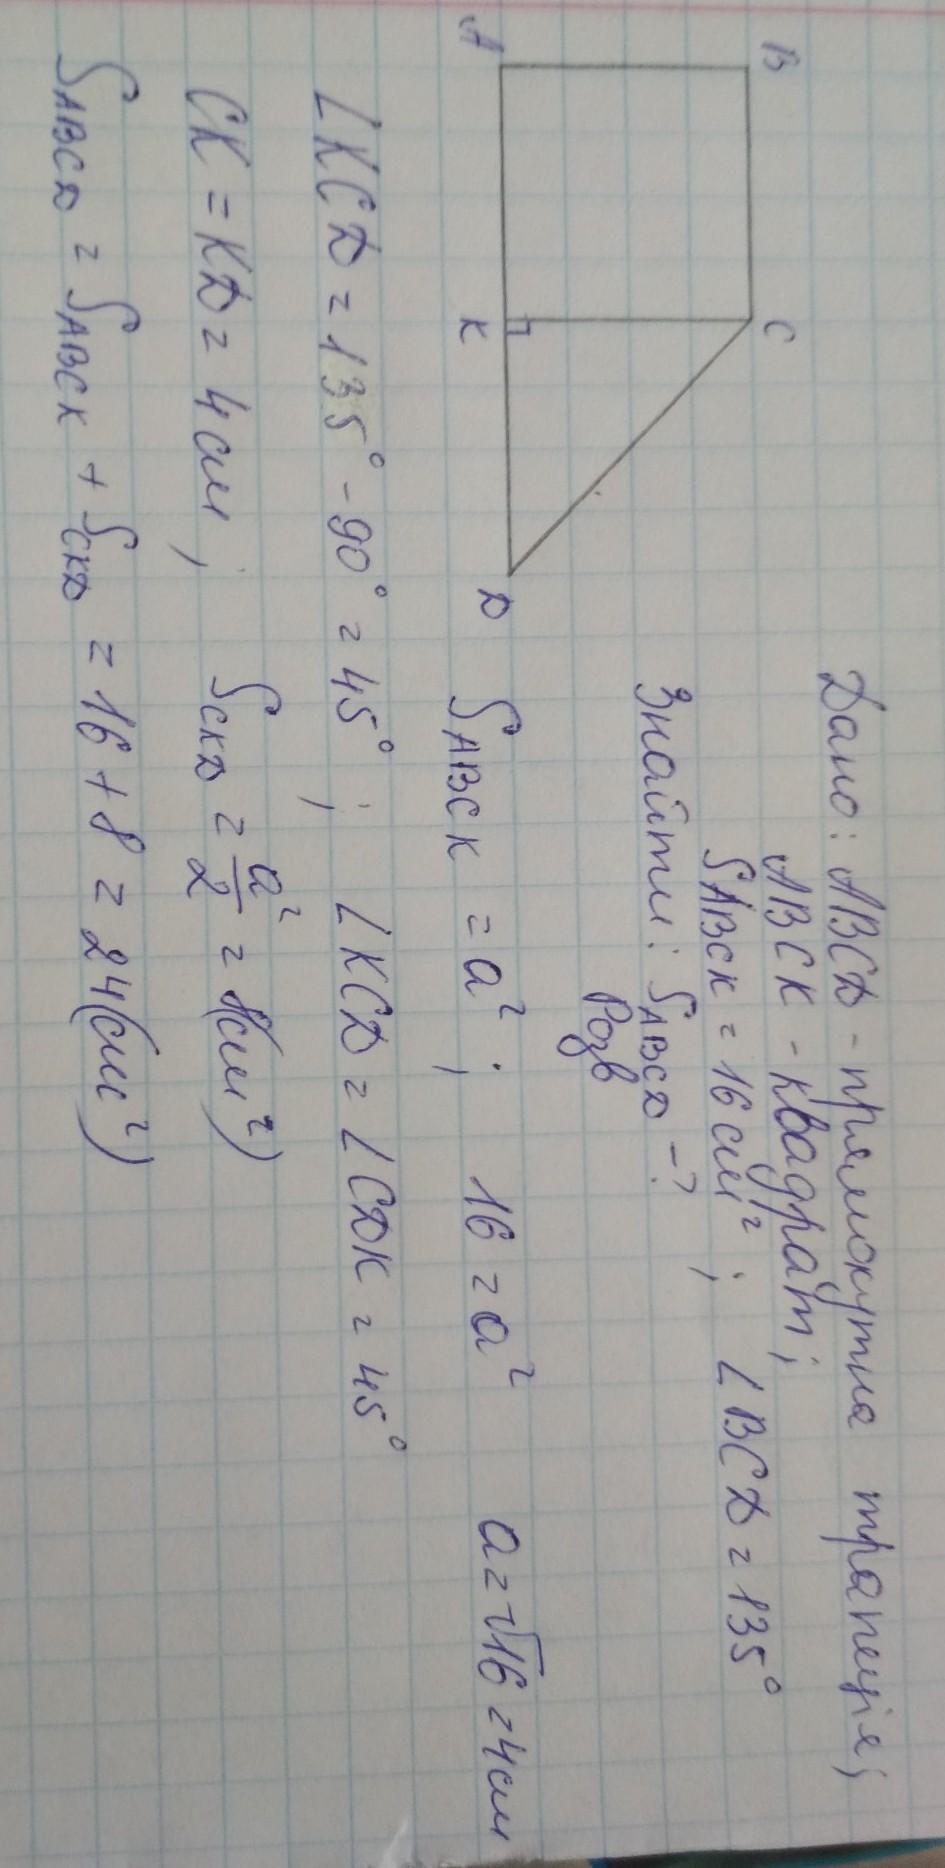 B
C
A
K
D
Дано: ABCD - прямокутна трапеція;
ABCK - квадрат;
SABCK = 16 см²; ∠BCD = 135°
Знайти: SABCD -?
Розв
SABCK = a²; 16 = a² a = √16 = 4 см
∠KCD = 135° - 90° = 45°; ∠KCD = ∠CDK = 45°
CK = KD = 4 см; SCKD = a²/2 = 8(см²)
SABCD = SABCK + SCKD = 16 + 8 = 24(см²)